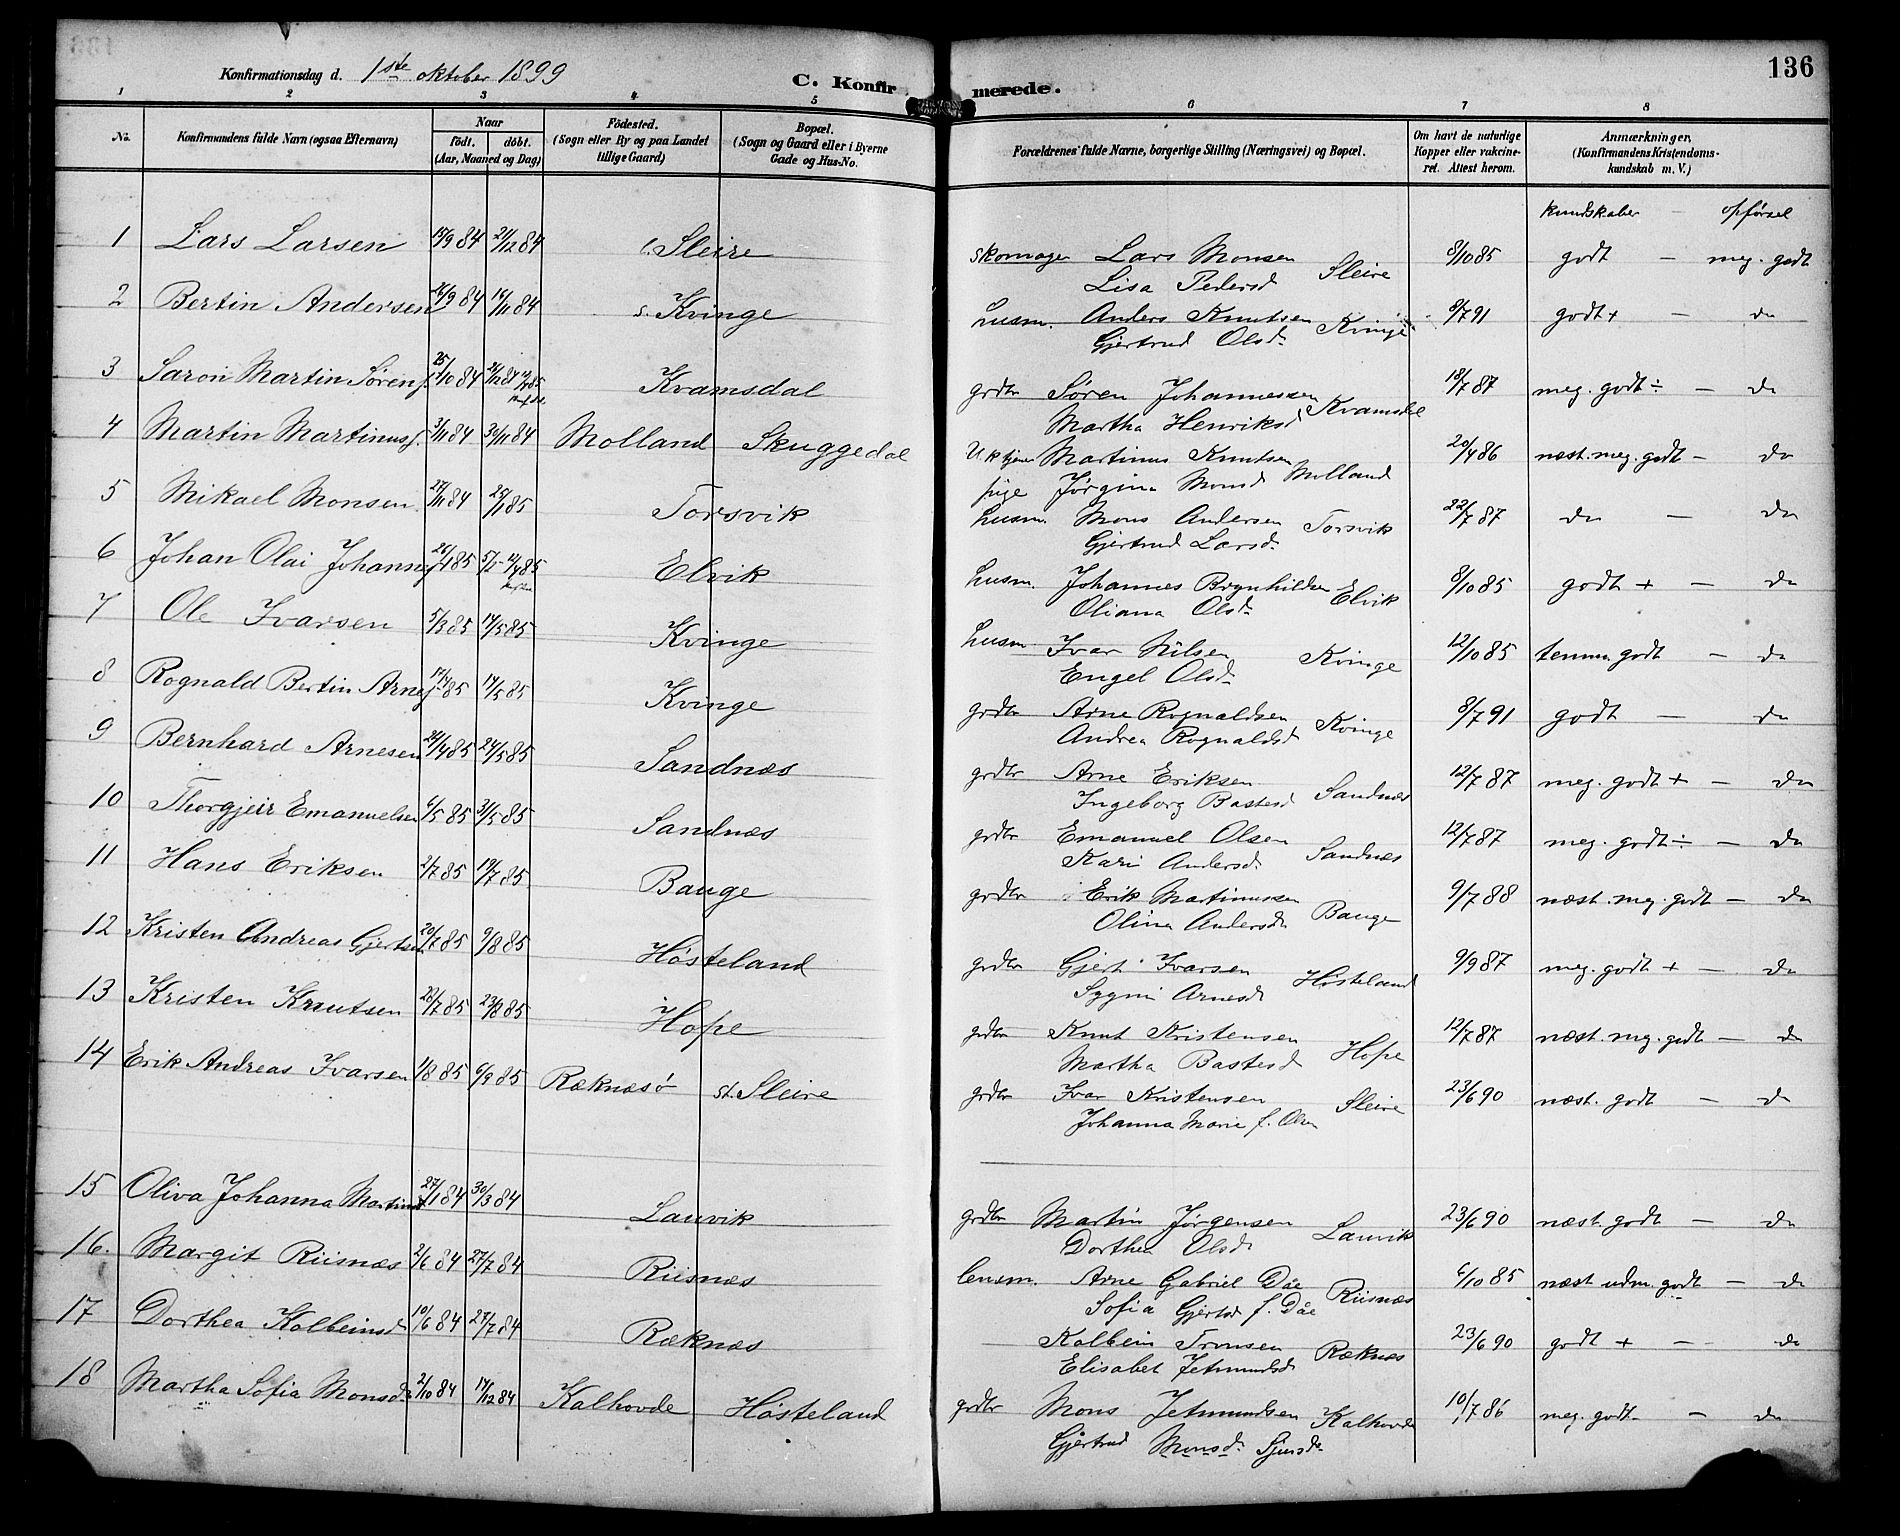 136
Konfirmationsdag d. 1ste oktober 1899
C. Konfirmerede.
1 2 3 4 5 6 7 8
No. Konfirmandens fulde Navn (ogsaa Efternavn) Naar født. døbt. (Aar, Maaned og Dag) Fødested. (Sogn eller By og paa Landet tillige Gaard) Bopæl. (Sogn og Gaard eller i Byerne Gade og Hus-No. Forældrenes fulde Navne, borgerlige Stilling (Næringsvei) og Bopæl. Om havt de naturlige Kopper eller vakcineret. Attest herom. Anmærkninger, (Konfirmandens Kristendomskundskab m. V.)
kundskaber - opførsel
1 Lars Larsen 84 21/12 84 Sleire skomager Lars Monsen Sleire 8/10 85 godt - meg. godt
Lisa Pedersd
2 Bertin Andersen 26/9 84 16/11 84 s. Kvinge husm. Anders Knutsen Kvinge 8/7 91 godt + - do
Gjertrud Olsd.
3 Saron Martin Sørens. 25/10 84 21/12 84 Kvamsdal grdbr Søren Johannessen Kvamsdal 18/7 87 meg. godt ÷ - do
Martha Henriksd
4 Martin Martinus. 3/11 84 30/11 84 Molland Skuggedal U.k tjener Martinus Knutsen Molland 20/4 86 næst. meg. godt - do
pige Jørgina Monsd
5 Mikael Monsen 27/11 84 25/1 85 Torsvik husm. Mons Andersen Torsvik 22/7 87 do - do
Gjertrud Larsd.
6 Johan Olai Johans 26/1 85 Elvik husm. Johannes Brynhildsen Elvik 8/10 85 godt + - do
Oliana Olsd.
7 Ole Ivarsen 5/3 85 17/5 85 Kvinge husm. Ivar Nilsen Kvinge 12/10 85 temm. godt - do
Engel Olsd.
8 Rognald Bertin Arnes 85 17/5 85 Kvinge grdbr Arne Rognaldsen Kvinge 8/7 91 godt - do
Andrea Rognaldsd
9 Bernhard Arnesen 24/4 85 24/5 85 Sandnæs grdbr Arne Eriksen Sandnæs 12/7 87 meg. godt + - do
Ingeborg Bastesd
10 Thorgjeir Emanuelsen 6/5 85 31/5 85 Sandnæs grdbr Emanuel Olsen Sandnæs 12/7 87 meg. godt ÷ - do
Kari Andersd.
11 Hans Eriksen 2/7 85 19/7 85 Bauge grdbr Erik Martinussen Bauge 9/7 88 næst. meg. godt - do
Olina Andersd.
12 Kristen Andreas Gjertsen 20/7 85 9/8 85 Høsteland grdbr Gjert Ivarsen Høsteland 9/9 87 meg. godt + - do
Sygni Arnesd.
13 Kristen Knutsen 22/7 85 23/8 85 Hope grdbr Knut Kristensen Hope 12/7 87 næst. meg. godt - do
Martha Bastesd
14 Erik Andreas Ivarsen 1/8 85 6/9 85 Ræknæsø st. Sleire grdbr Ivar Kristensen Sleire 23/6 90 næst. godt - do
Johanna Marie f. Olsen
15 Oliva Johanna Martinsd 27/1 84 30/3 84 Lauvik grdbr Martin Jørgensen Lauvik 23/6 90 næst. godt - do
Dorthea Olsd.
16. Margit Riisnæs 2/6 84 27/7 84 Riisnæs lensm. Arne Gabriel Dåe Riisnæs 6/10 85 næst udm. godt - do
Sofia Gjertsd f. Dåe
17 Dorthea Kolbeinsd 10/6 84 27/7 84 Ræknæs Kolbein Tronsen Ræknæs 23/6 90 godt + - do
Elisabet Jetmundsd
18 Martha Sofia Monsd. 2/10 84 17/12 84 Kalhovde Høsteland grdbr Mons Jetmundsen Kalhovde 10/7 86 meg. godt - do
Gjertrud Monsd. Sjursd.